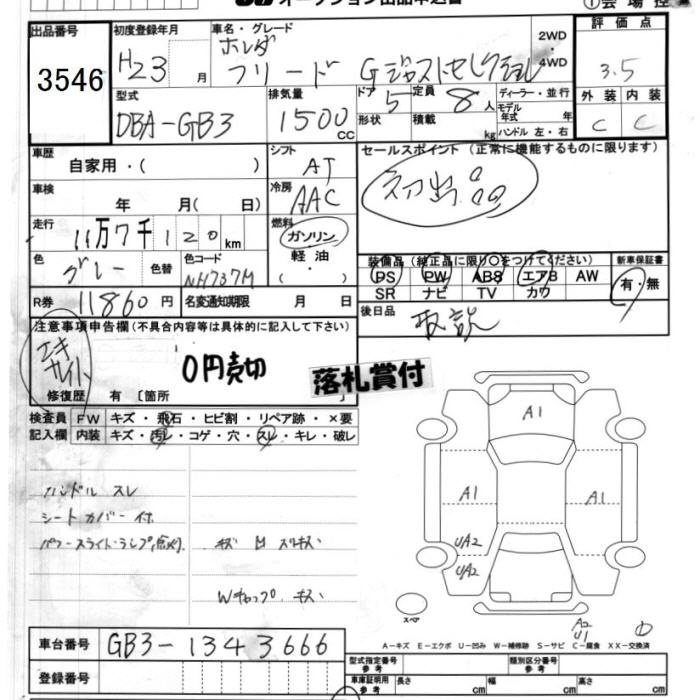 オークション出品申込書
①会場控
出品番号
3546
初度登録年月
H23 月
車名・グレード
ホンダ
フリード Gジャストセレクション
2WD
・
4WD
評価点
3.5
外装 内装
C C
型式
DBA-GB3
排気量
1500
CC
ドア 5
形状
定員 8 人
積載 kg
ディーラー・並行
モデル
年式 年
ハンドル 左・右
車歴
自家用・( )
シフト
AT
冷房
AAC
セールスポイント(正常に機能するものに限ります)
初出品
車検
年 月( 日)
走行
11万7千120km
燃料
ガソリン
軽油
・
( )
色
グレー
色替
色コード
NH737M
装備品(純正品に限り○をつけてください)
PS PW ABS エアB AW
SR ナビ TV カワ
新車保証書
有・無
R券 11860円
名変通知期限 月 日
後日品
取説
注意事項申告欄(不具合内容等は具体的に記入して下さい)
0円売切
落札賞付
修復歴 有 [箇所
検査員
記入欄
FW キズ・飛石・ヒビ割・リペア跡・×要
内装 キズ・汚レ・コゲ・穴・スレ・キレ・破レ
ハンドル スレ
シートカバー付
キズ
キズ
A1
A1
A1
UA2
UA2
スペア
A2
U1
A=キズ E=エクボ U=凹み W=補修跡 S=サビ C=腐食 XX=交換済
車台番号
GB3-1343666
登録番号
型式指定番号
参考
類別区分番号
参考
車庫証明用
参考
長さ cm 幅 cm 高さ cm